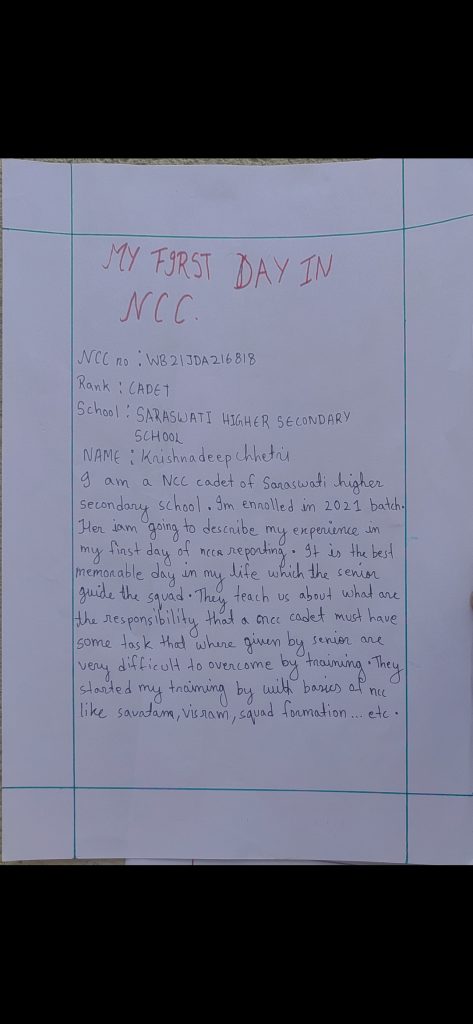 MY FIRST DAY IN
NCC.
NCC no : WB21JDA216818
Rank : CADET
School : SARASWATI HIGHER SECONDARY
SCHOOL
NAME : Krishnadeep Chhetri
I am a NCC cadet of Saraswati higher
secondary school. Im enrolled in 2021 batch.
Her iam going to describe my experience in
my first day of ncca reporting. It is the best
memorable day in my life which the senior
guide the squad. They teach us about what are
the responsibility that a cncc cadet must have
some task that where given by senior are
very difficult to overcome by training. They
started my training by with basics of ncc
like savatam, visram, squad formation ... etc.